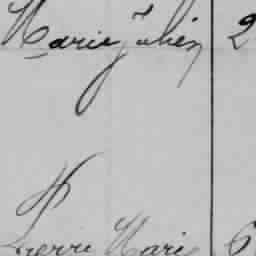 Marie Julien 2
Pierre Marie 6